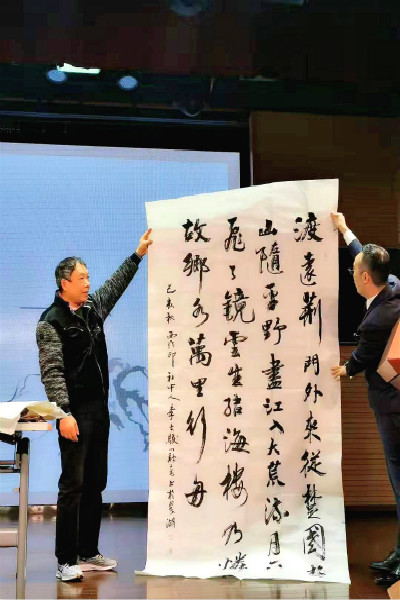 渡遠荊門外來從楚國游
山隨平野盡江入大荒流月下
飛天鏡雲生結海樓乃憐
故鄉水萬里行舟